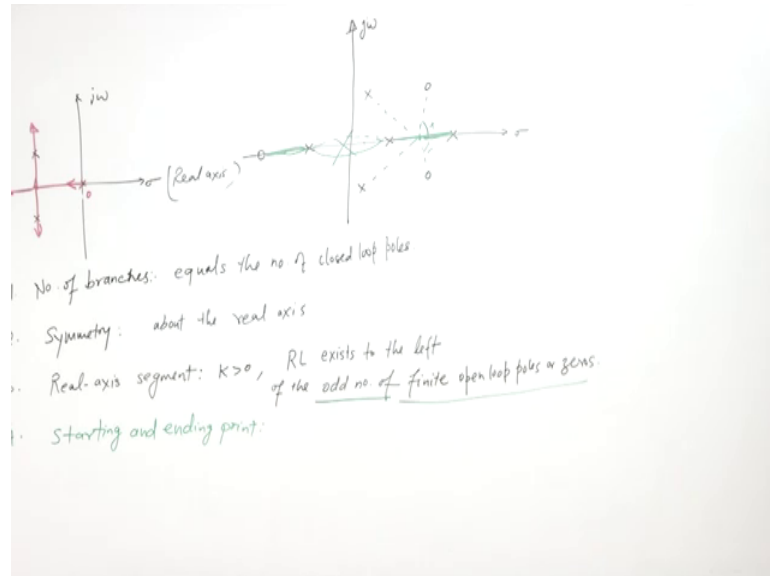 jω
jω
σ (Real axis)
σ
0
1. No. of branches: equals the no of closed loop poles
2. Symmetry: about the real axis
3. Real-axis segment: K>0, RL exists to the left
of the odd no. of finite open loop poles or zeros.
4. Starting and ending point: